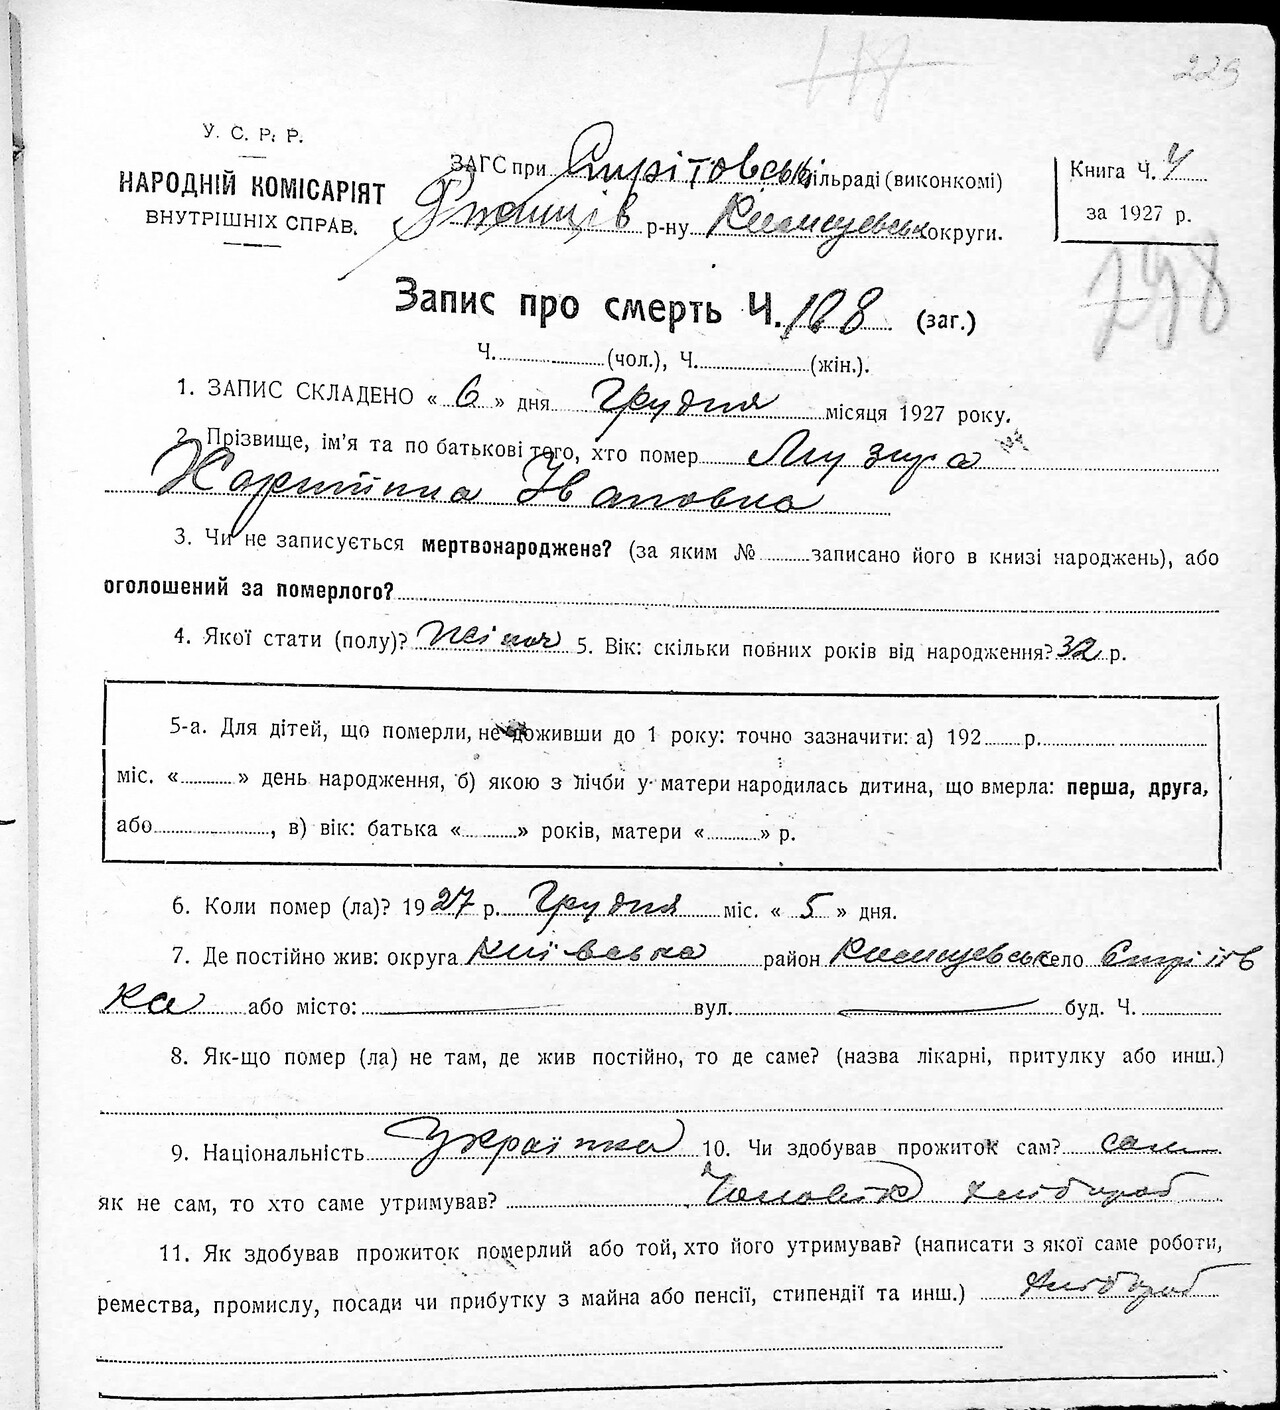 117
229
У. С. Р. Р.
НАРОДНІЙ КОМІСАРІЯТ
ВНУТРІШНІХ СПРАВ.
ЗАГС при Стрітовськ сільраді (виконкомі)
р-ну округи.
Книга Ч. 4
за 1927 р.
Запис про смерть Ч. 108 (заг.)
Ч. (чол.), Ч. (жін.).
1. ЗАПИС СКЛАДЕНО « 6 » дня Грудня місяця 1927 року.
2. Прізвище, ім'я та по батькові того, хто помер Музира
Харитина Івановна
3. Чи не записується мертвонароджене? (за яким № записано його в книзі народжень), або
оголошений за померлого?
4. Якої стати (полу)? жіноч 5. Вік: скільки повних років від народження? 32 р.
5-а. Для дітей, що померли, не доживши до 1 року: точно зазначити: а) 192 р.
міс. « » день народження, б) якою з лічби у матери народилась дитина, що вмерла: перша, друга,
або , в) вік: батька « » років, матери « » р.
6. Коли помер (ла)? 1927 р. Грудня міс. « 5 » дня.
7. Де постійно жив: округа Київська район село Стрітов
ка або місто: вул. буд. Ч.
8. Як-що помер (ла) не там, де жив постійно, то де саме? (назва лікарні, притулку або инш.)
9. Національність Українка 10. Чи здобував прожиток сам? сам
як не сам, то хто саме утримував? Чоловік хлібороб
11. Як здобував прожиток померлий або той, хто його утримував? (написати з якої саме роботи,
ремества, промислу, посади чи прибутку з майна або пенсії, стипендії та инш.) хлібороб